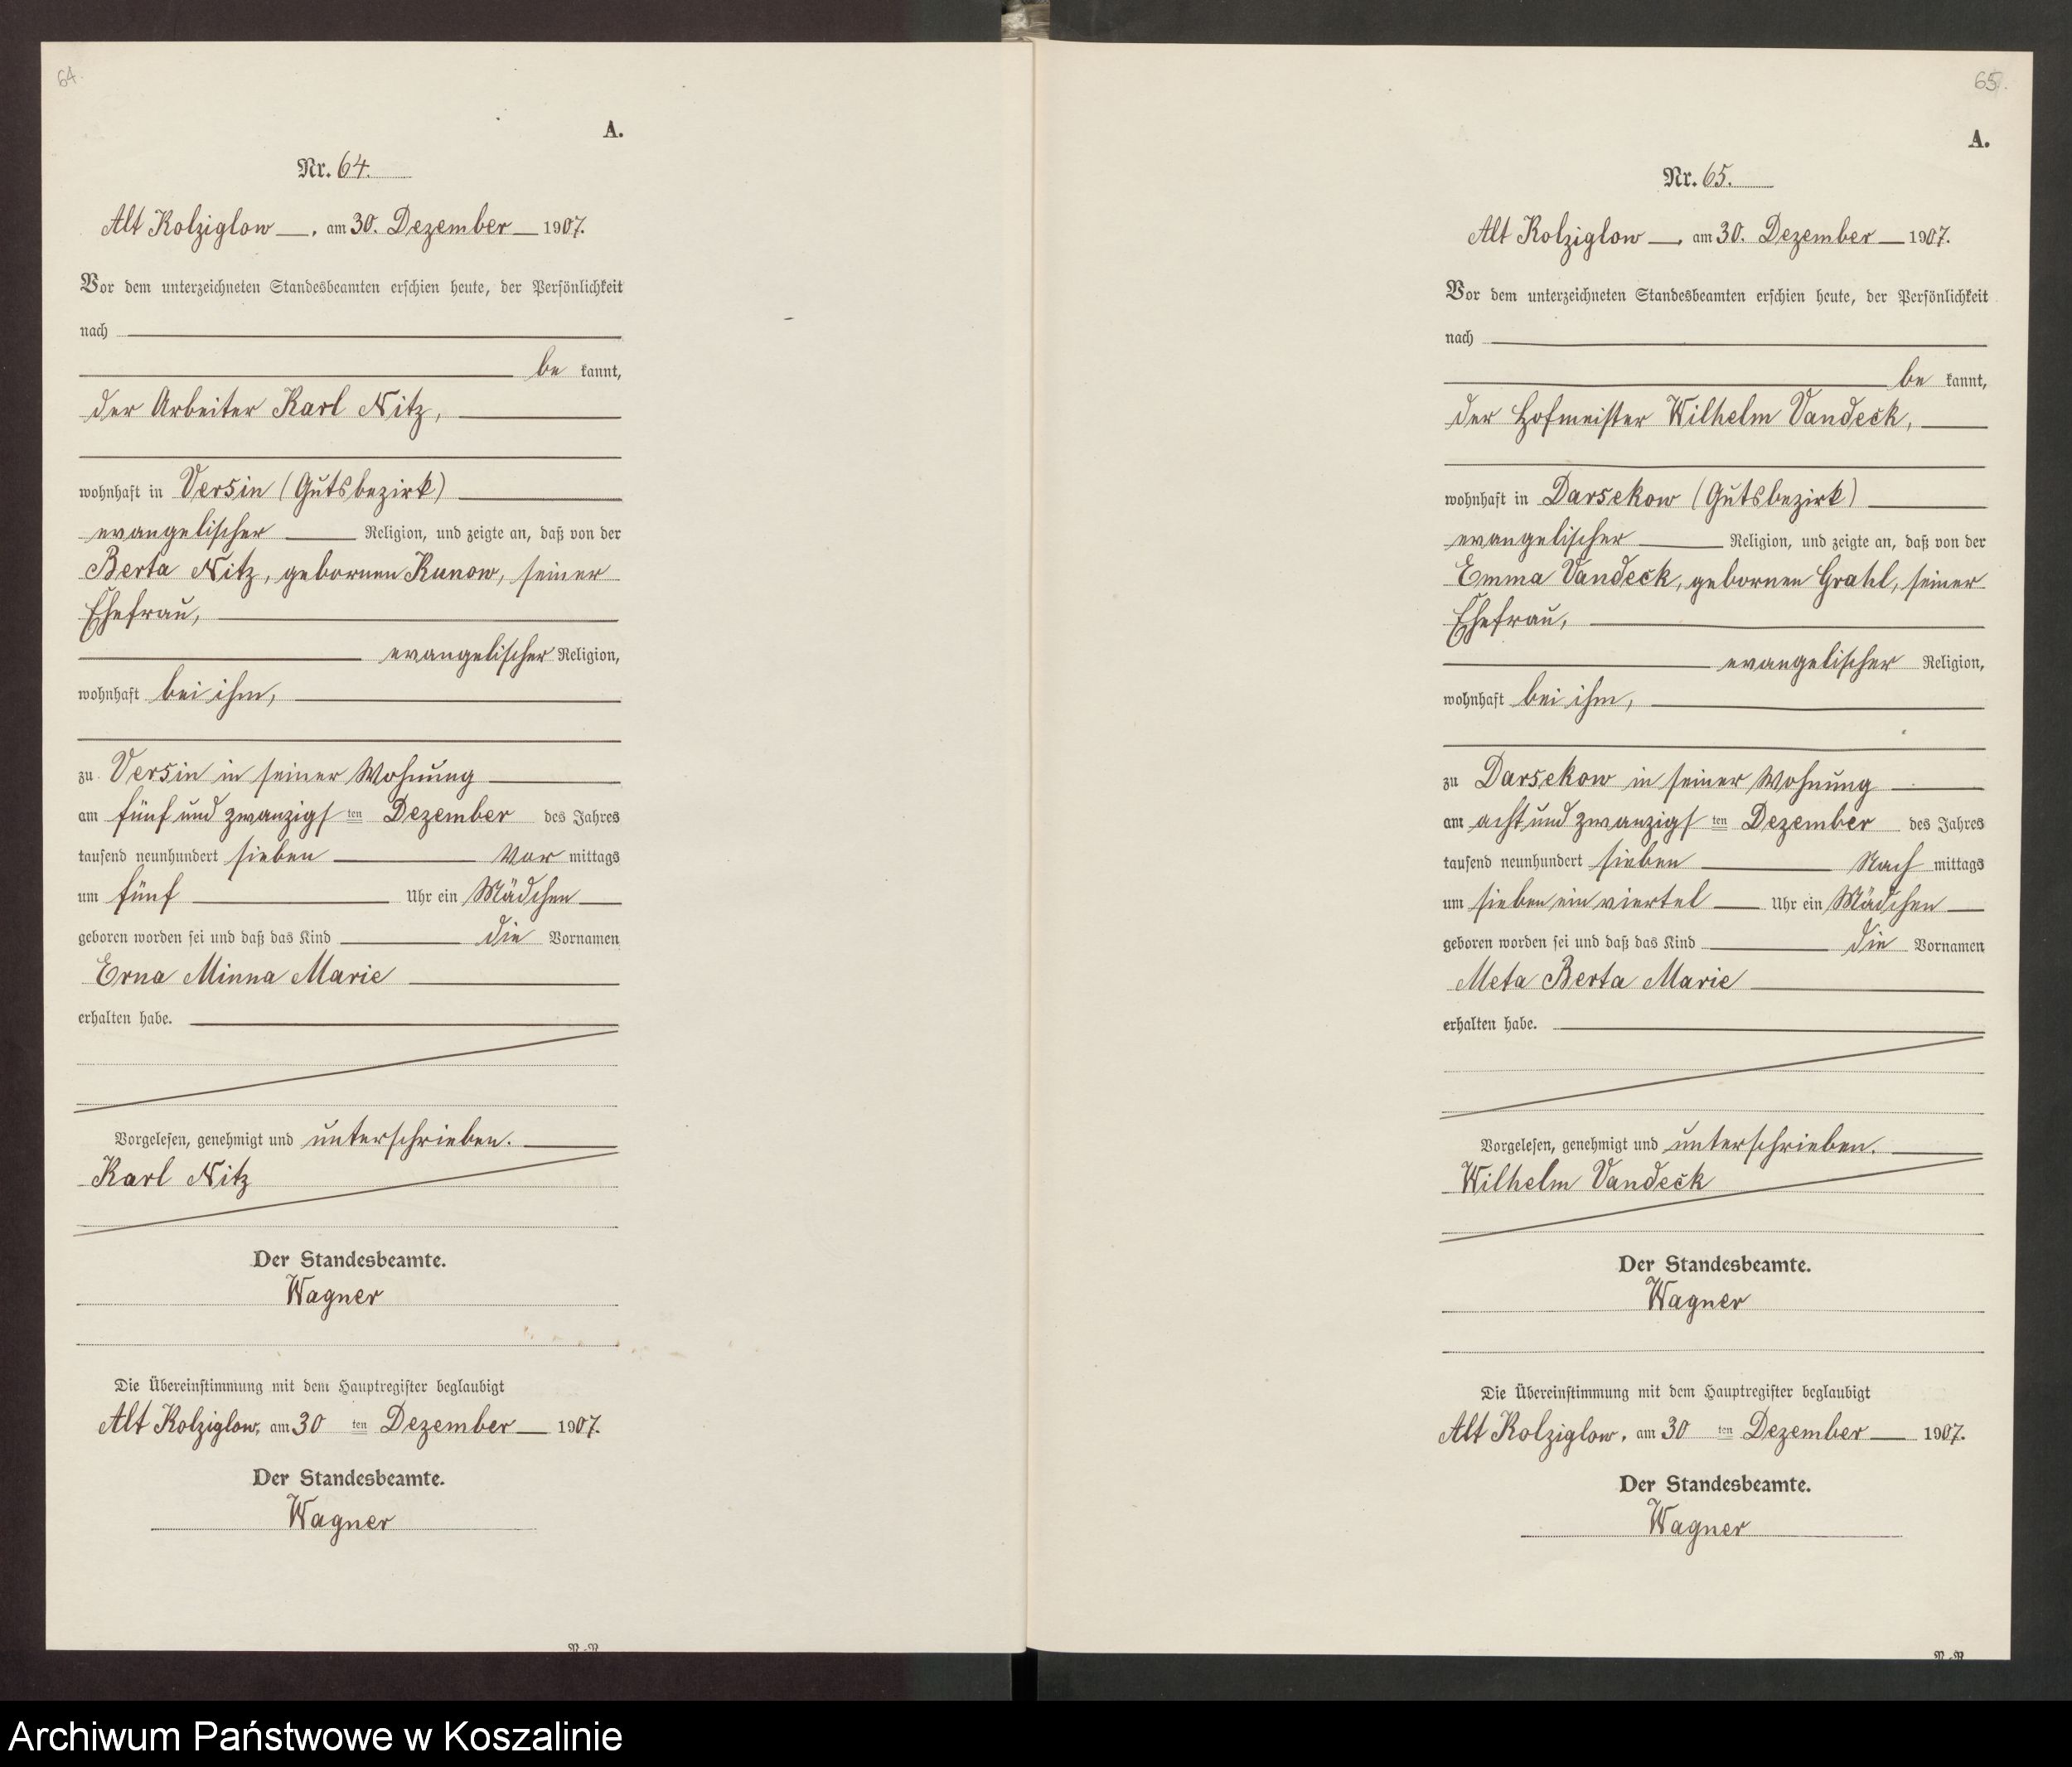 64.
A.
Nr. 64.
Alt Kolziglow, am 30. Dezember 1907.
Vor dem unterzeichneten Standesbeamten erschien heute, der Persönlichkeit
nach
be kannt,
der Arbeiter Karl Nitz,
wohnhaft in Versin (Gutsbezirk)
evangelischer Religion, und zeigte an, daß von der
Berta Nitz, gebornen Kunow, seiner
Ehefrau,
evangelischer Religion,
wohnhaft bei ihm,
zu Versin in seiner Wohnung
am fünf und zwanzigs ten Dezember des Jahres
tausend neunhundert sieben Vor mittags
um fünf Uhr ein Mädchen
geboren worden sei und daß das Kind die Vornamen
Erna Minna Marie
erhalten habe.
Vorgelesen, genehmigt und unterschrieben.
Karl Nitz
Der Standesbeamte.
Wagner
Die Übereinstimmung mit dem Hauptregister beglaubigt
Alt Kolziglow, am 30 ten Dezember 1907.
Der Standesbeamte.
Wagner
65.
A.
Nr. 65.
Alt Kolziglow, am 30. Dezember 1907.
Vor dem unterzeichneten Standesbeamten erschien heute, der Persönlichkeit
nach
be kannt,
der Hofmeister Wilhelm Vandeck,
wohnhaft in Darsekow (Gutsbezirk)
evangelischer Religion, und zeigte an, daß von der
Emma Vandeck, gebornen Grahl, seiner
Ehefrau,
evangelischer Religion,
wohnhaft bei ihm,
zu Darsekow in seiner Wohnung
am acht und zwanzigs ten Dezember des Jahres
tausend neunhundert sieben Nach mittags
um sieben ein viertel Uhr ein Mädchen
geboren worden sei und daß das Kind die Vornamen
Meta Berta Marie
erhalten habe.
Vorgelesen, genehmigt und unterschrieben.
Wilhelm Vandeck
Der Standesbeamte.
Wagner
Die Übereinstimmung mit dem Hauptregister beglaubigt
Alt Kolziglow, am 30 ten Dezember 1907.
Der Standesbeamte.
Wagner
Archiwum Państwowe w Koszalinie